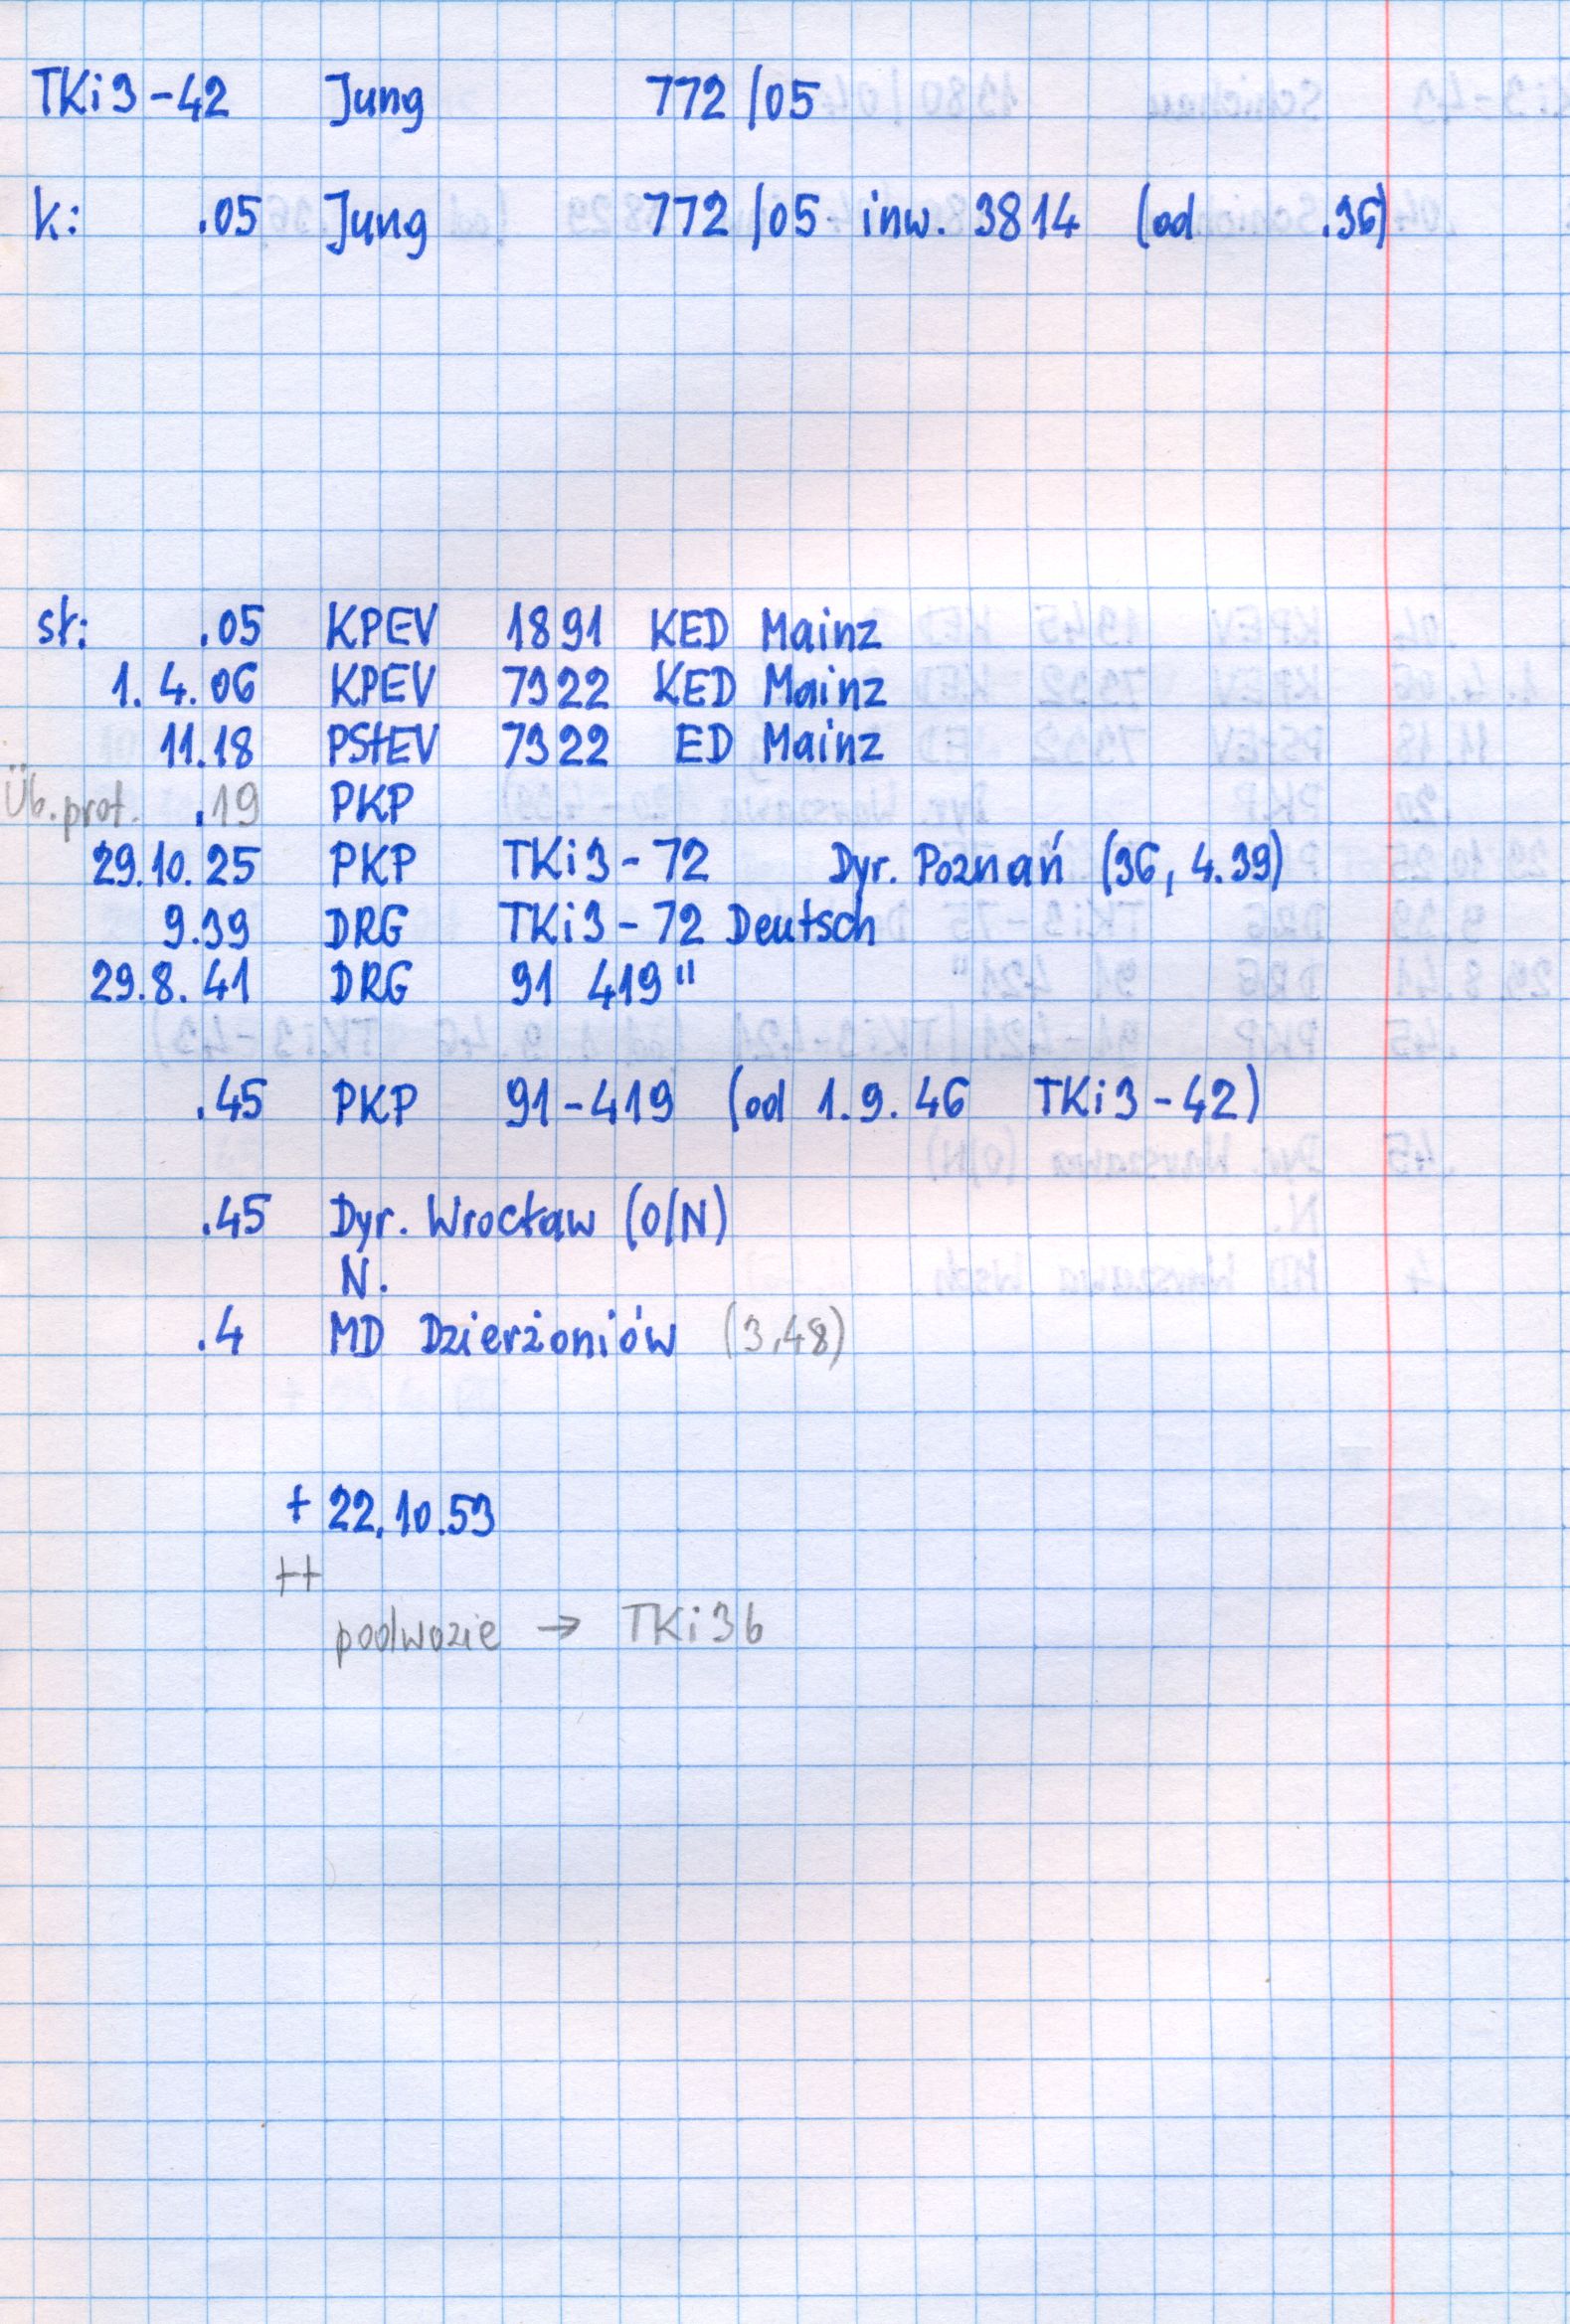 TKi3-42 Jung 772/05
k: .05 Jung 772/05 inw. 3814 (od .36)
st: .05 KPEV 1891 KED Mainz
1.4.06 KPEV 7322 KED Mainz
11.18 PStEV 7322 ED Mainz
Üb.prot. .19 PKP
29.10.25 PKP TKi3-72 Dyr. Poznań (36, 4.39)
9.39 DRG TKi3-72 Deutsch
29.8.41 DRG 91 419"
.45 PKP 91-419 (od 1.9.46 TKi3-42)
.45 Dyr. Wrocław (O/N)
N.
.4 MD Dzierżoniów (3.48)
+ 22.10.53
++
podwozie → TKi3b